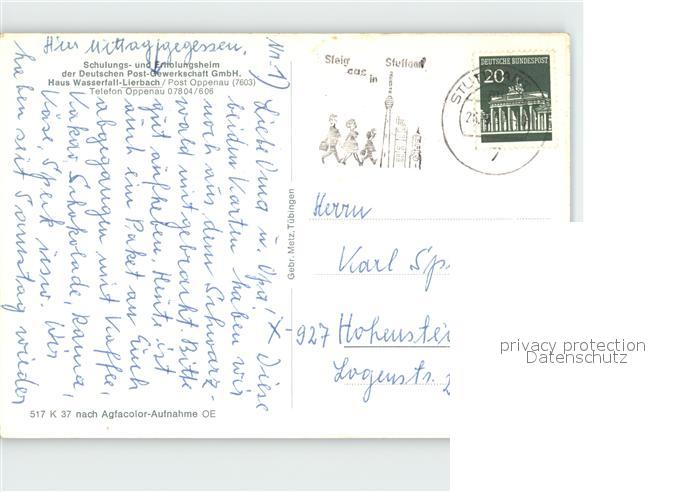 Hier Mittaggegessen.
Schulungs- und Erholungsheim
der Deutschen Post-Gewerkschaft GmbH.
Haus Wasserfall-Lierbach / Post Oppenau (7603)
Telefon Oppenau 07804/606
Nr. 1) Liebe Oma u. Opa! X Diese
beiden Karten haben wir
noch aus dem Schwarz-
wald mitgebracht. Bitte
gut aufheben. Heute ist
auch ein Paket an Euch
abgegangen mit Kaffee,
Kakao, Schokolade, Rama,
Käse, Speck usw. Wir
haben seit Samstag wieder
517 K 37 nach Agfacolor-Aufnahme OE
Gebr. Metz, Tübingen
Steig aus in Stuttgart
STUTTGART
7
DEUTSCHE BUNDESPOST
20
Herrn
Karl Sp
-927 Hohenstei
Logenstr. 2
privacy protection
Datenschutz